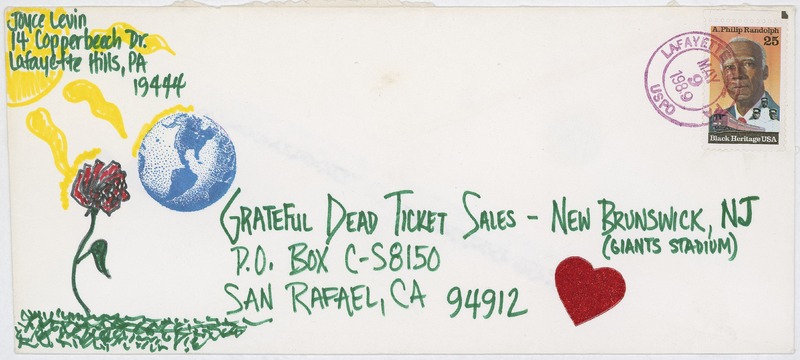 Joyce Levin
14 Copperbeech Dr.
Lafayette Hills, PA
19444
A. Philip Randolph
25
LAFAYETTE
MAY
9
1989
USPO
Black Heritage USA
GRATEFUL DEAD TICKET SALES - NEW BRUNSWICK, NJ
(GIANTS STADIUM)
P.O. BOX C-S8150
SAN RAFAEL, CA 94912